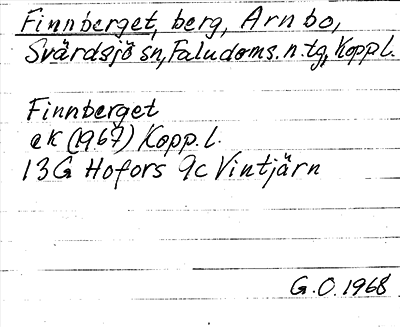 Finnberget, berg, Arnbo,
Svärdsjö sn, Faludoms. n. tg, Koppl.
Finnberget
ek (1967) Kopp.l.
13G Hofors 9c Vintjärn
G.O. 1968